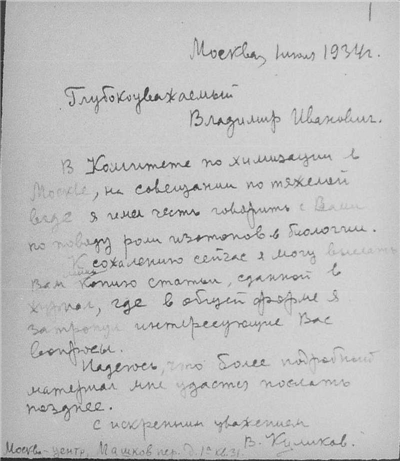 Москва, 1 июля 1934 г.
Глубокоуважаемый
Владимир Иванович.
В Комитете по химизации в
Москве, на совещании по тяжелой
воде я имел честь говорить с Вами
по поводу роли изотопов в биологии.
К сожалению сейчас я могу выслать
Вам лишь копию статьи, сданной в
журнал, где в общей форме я
затронул интересующие Вас
вопросы.
Надеюсь, что более подробный
материал мне удастся послать
позднее.
с искренним уважением
В. Куликов.
Москва-центр, Машков пер. д. 1а кв. 31.